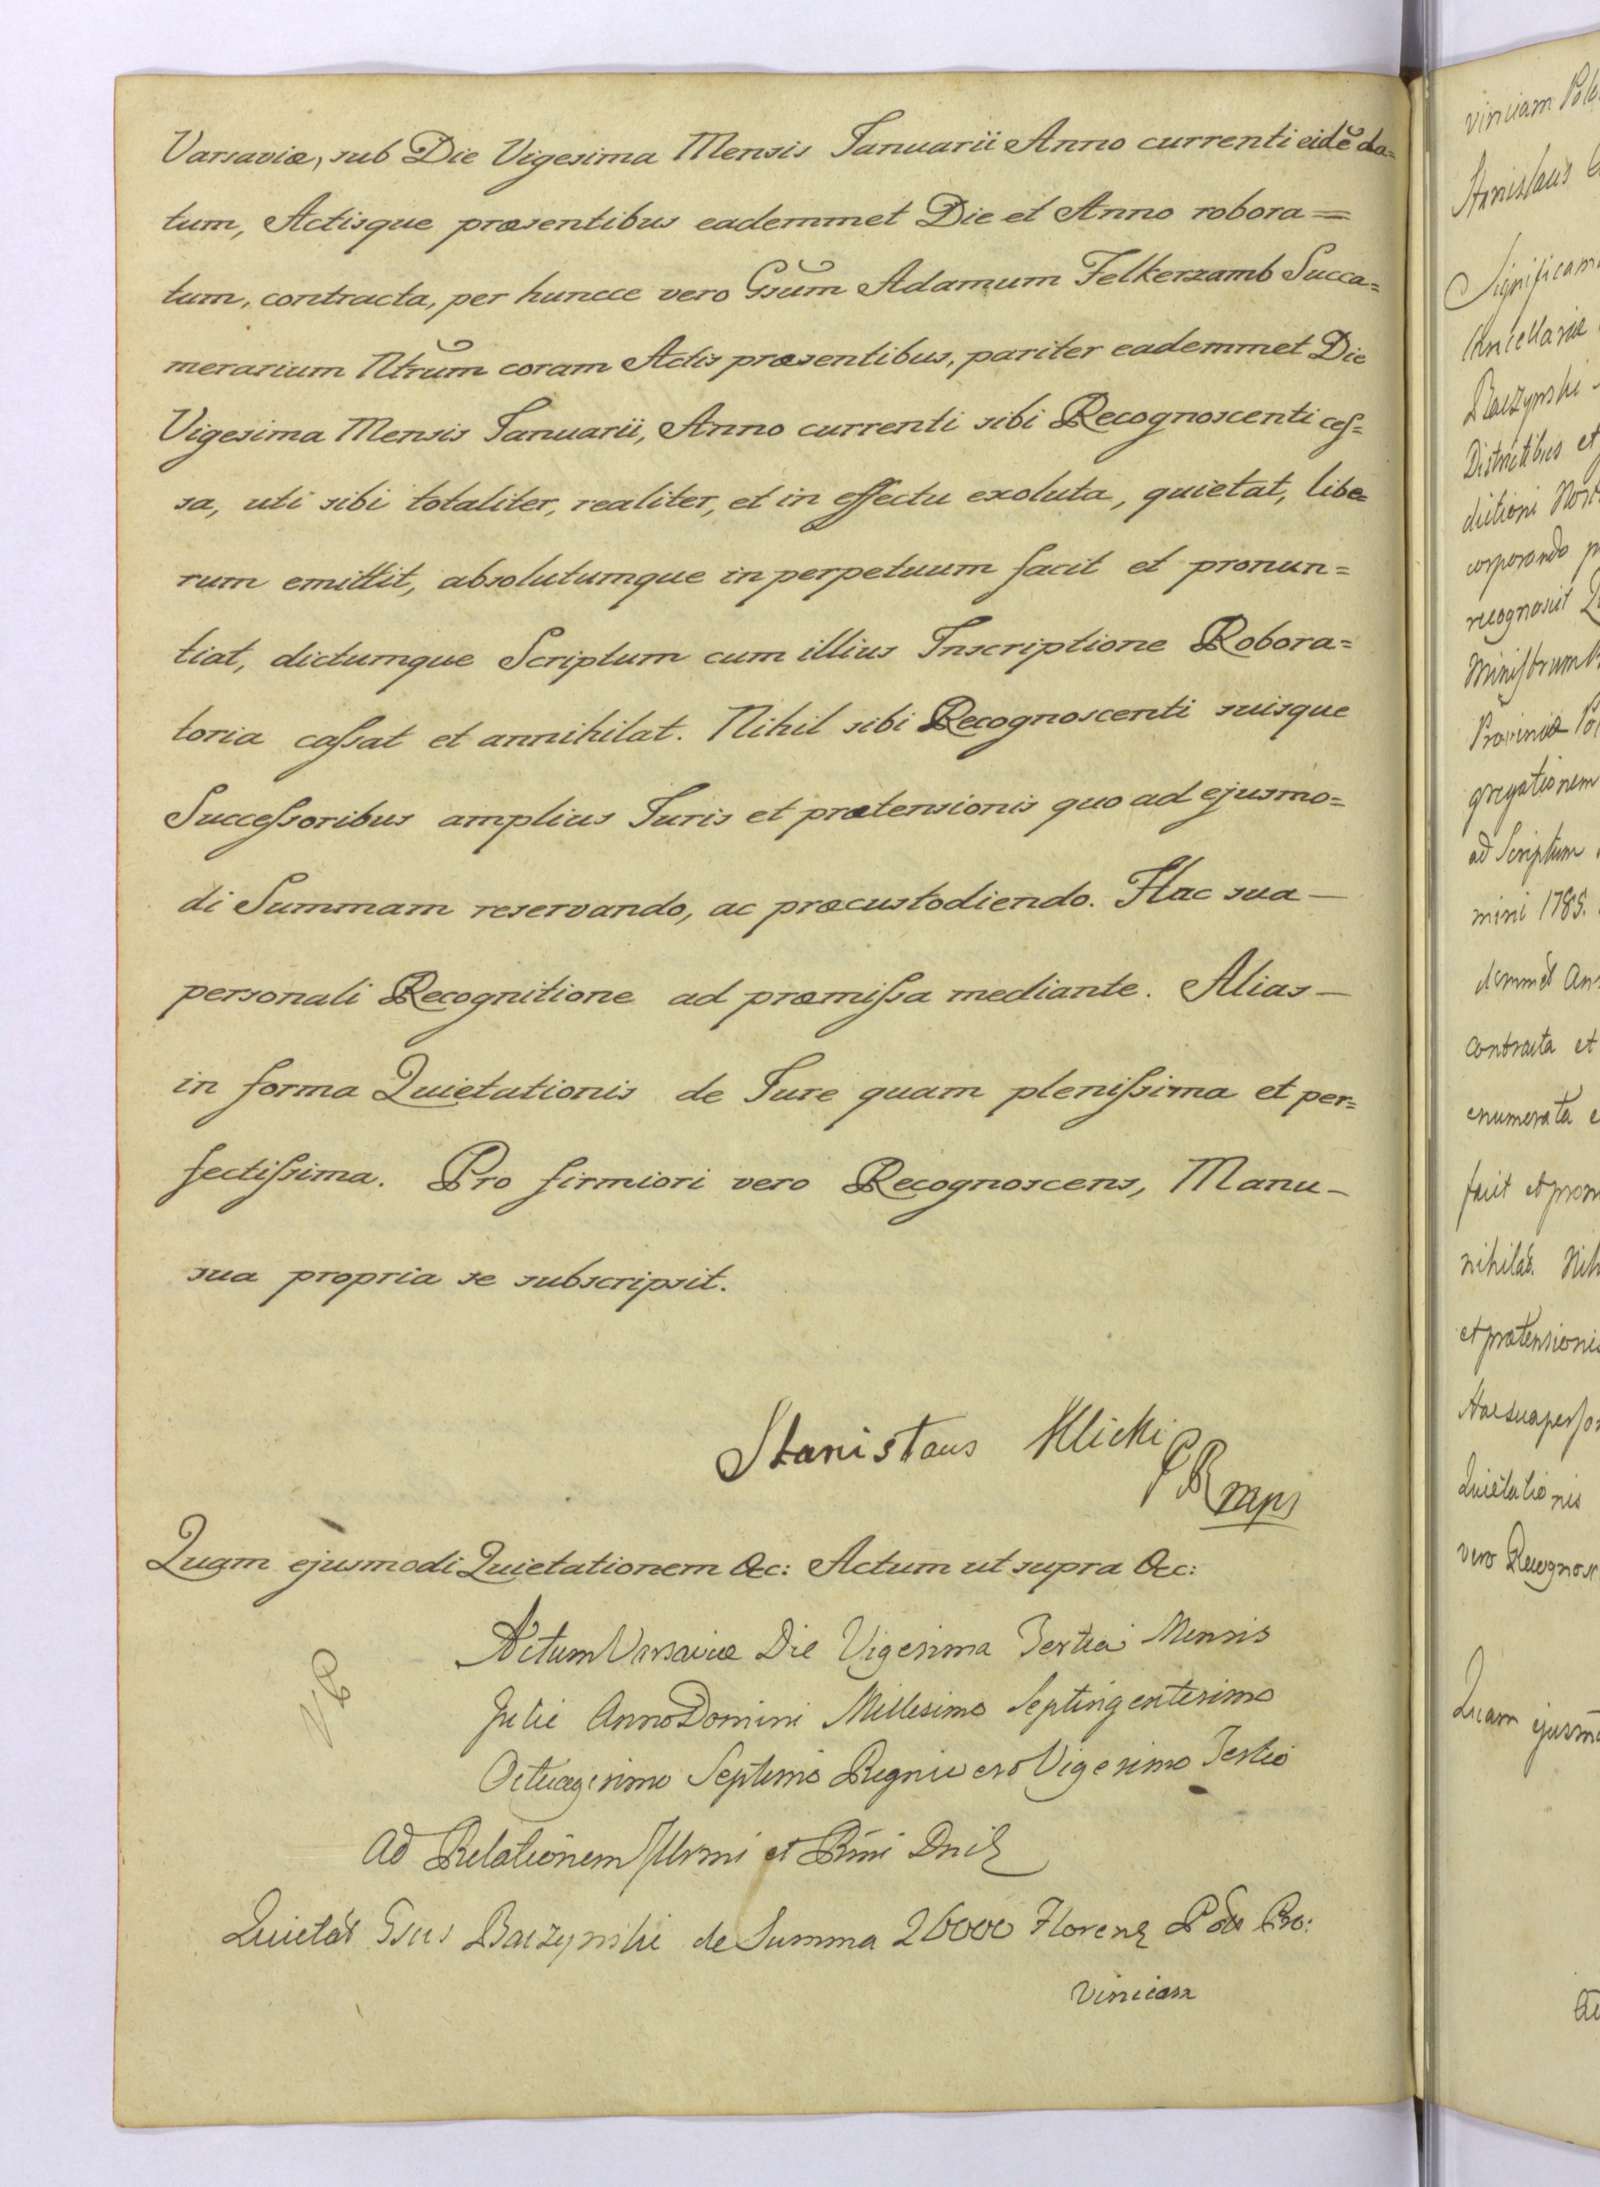 Varsaviæ, sub Die Vigesima Mensis Januarii Anno currenti eidẽ da=
tum, Actisque præsentibus eademmet Die et Anno robora=
tum, contracta, per huncce vero Gsum Adamum Felkerzamb Succa=
merarium Ntrum coram Actis præsentibus, pariter eademmet Die
Vigesima Mensis Januarii, Anno currenti sibi Recognoscenti ces=
sa, uti sibi totaliter, realiter, et in effectu exoluta, quietat, libe=
rum emittit, absolutumque in perpetuum facit et pronun=
tiat, dictumque Scriptum cum illius Inscriptione Robora=
toria caſsat et annihilat. Nihil sibi Recognoscenti suisque
Succeſsoribus amplius Juris et prætensionis quo ad ejusmo=
di Summam reservando, ac præcustodiendo. Hac sua—
personali Recognitione ad præmiſsa mediante. Alias—
in forma Quietationis de Jure quam pleniſsima et per=
fectiſsima. Pro firmiori vero Recognoscens, Manu-
sua propria se subscripsit.
Stanislaus Klicki
mps
Quam ejusmodi Quietationem &c: Actum ut supra &c:
Actum Varsaviæ Die Vigesima Tertia Mensis
Julii Anno Domini Millesimo Septingentesimo
Octuagesimo Septimo Regni vero Vigesimo Tertio
Ad Relationem Illrmi et Rmi Dni
Quietat Gsus Baczynski de Summa 26000 Floren Pol Pro:
vinciam
vinciam Pol
Stanislaus
Significam
Cancellariæ
Baczynski
Districtibus et
dictioni Nost
corporando
recognovit
Miniſtrum
Provinciæ Pol
gregationem
ad Scriptum
mini 1785.
demmet An
contracta et
enumerata e
facit et pron
nihilat. Nih
et prætensionis
Hac sua perſon
Quietationis
vero Recognosc
Quam ejusm
Ad